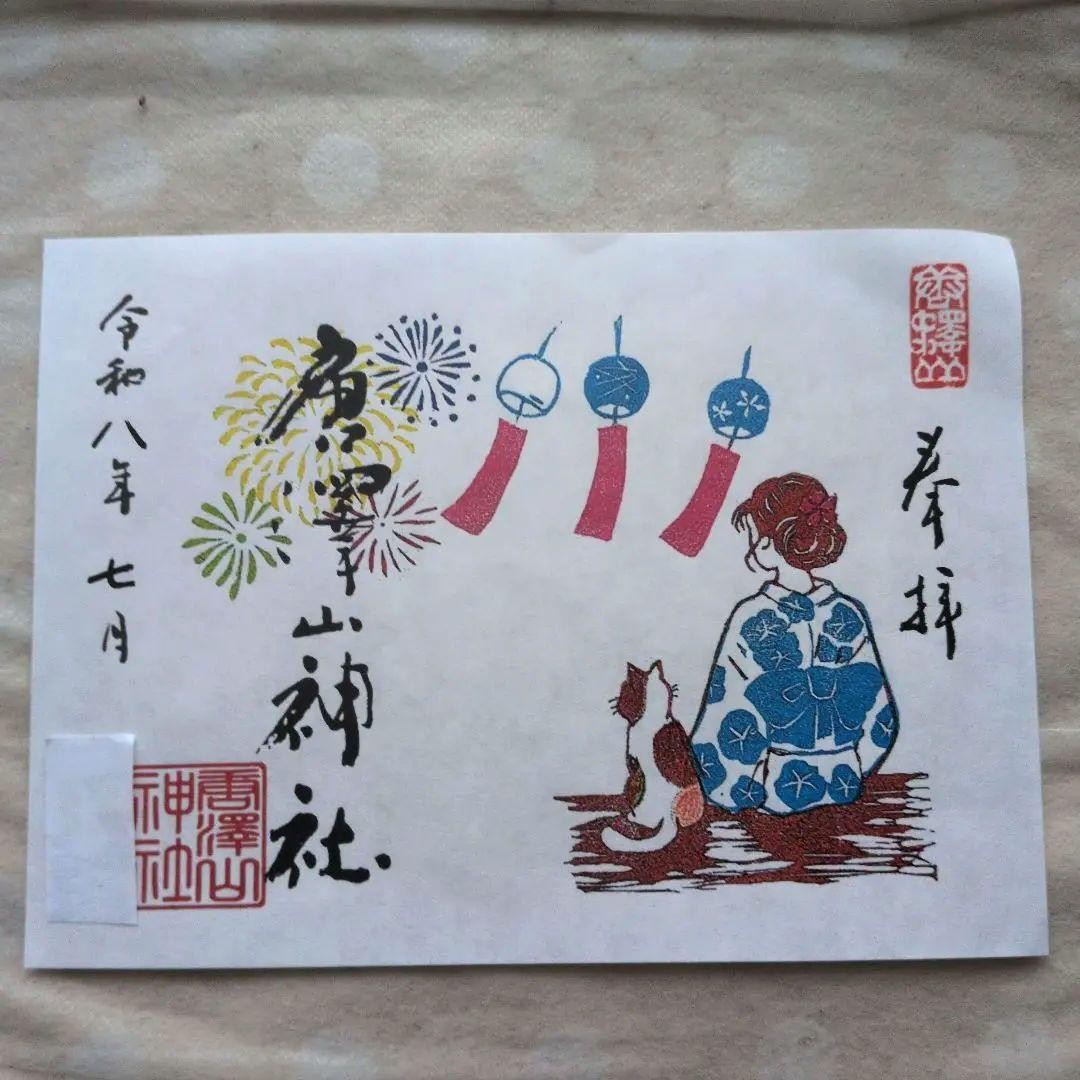 唐澤山
奉拝
唐澤山神社
唐澤山
神社
令和八年 七月